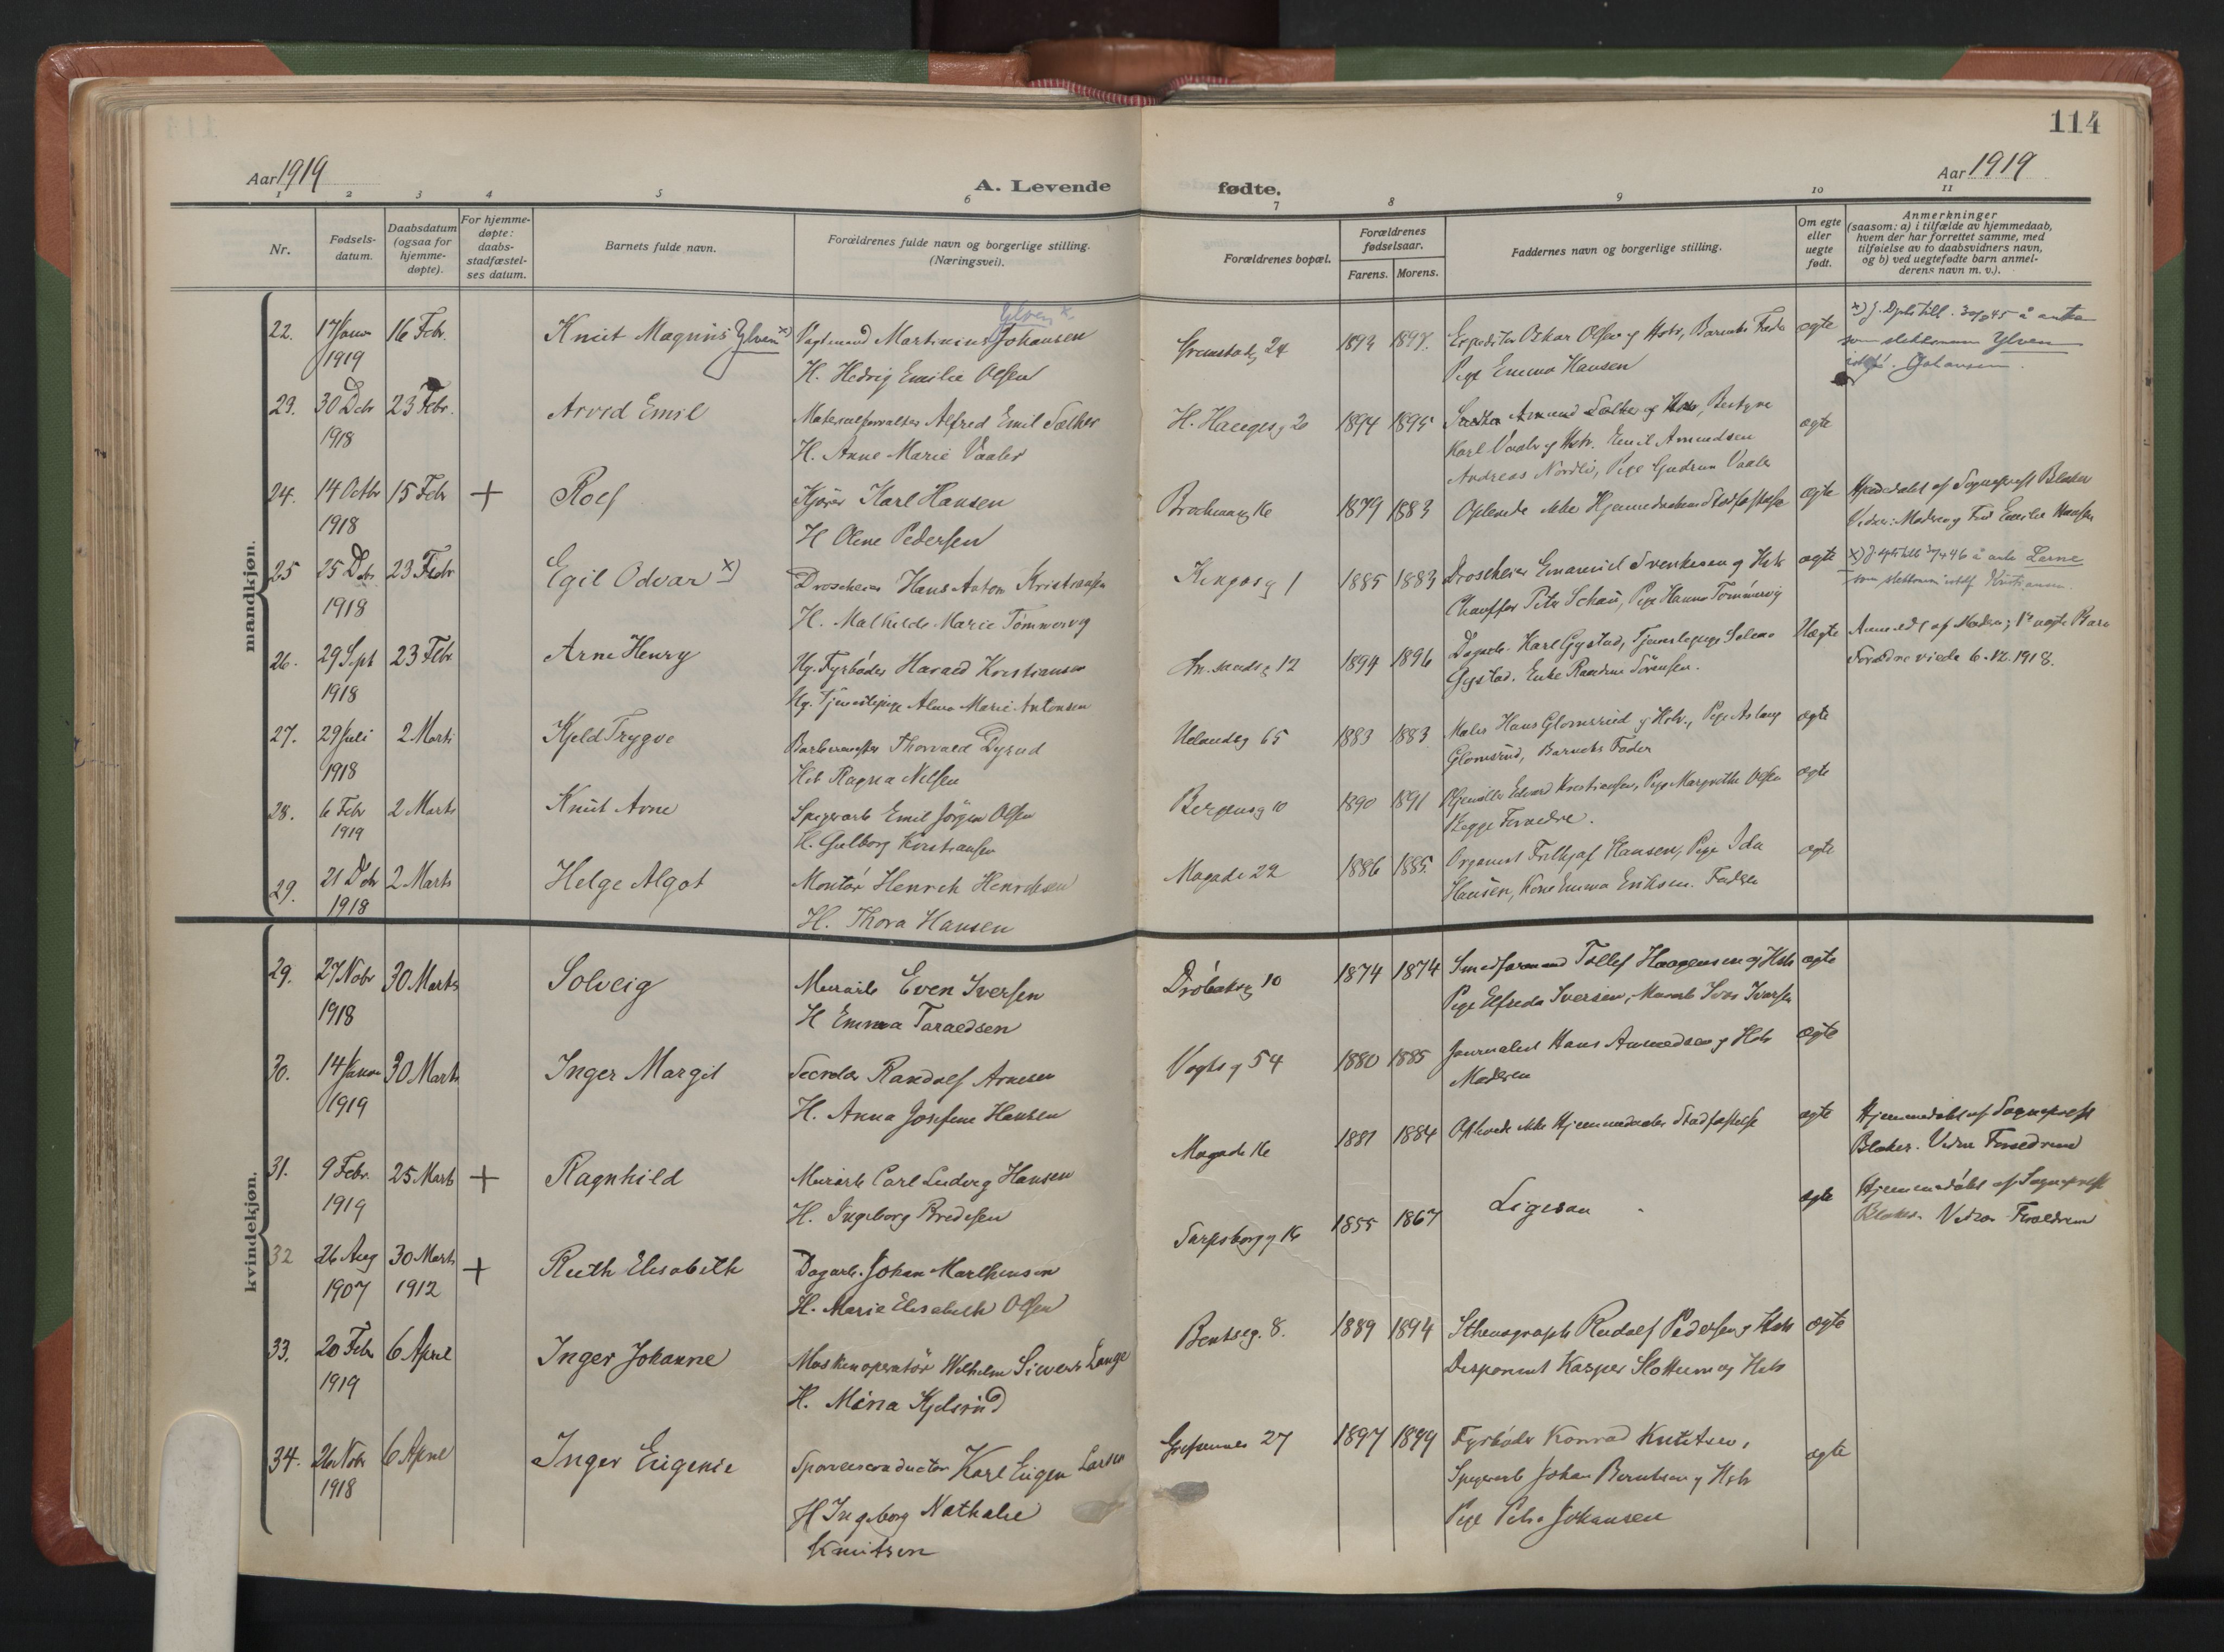 114
Aar 1919
A. Levende
fødte.
Aar 1919
1 2 3 4 5 6 7 8 9 10 11
Nr.
Fødsels-
datum.
Daabsdatum
(ogsaa for
hjemme-
døpte).
For hjemme-
døpte:
daabs-
stadfæstel-
ses datum.
Barnets fulde navn.
Forældrenes fulde navn og borgerlige stilling.
(Næringsvei).
Forældrenes bopæl.
Forældrenes
fødselsaar.
Farens. Morens.
Faddernes navn og borgerlige stilling.
Om egte
eller
uegte
født.
Anmerkninger
(saasom: a) i tilfælde av hjemmedaab,
hvem der har forrettet samme, med
tilføielse av to daabsvidners navn,
og b) ved uegtefødte barn anmel-
derens navn m. v.).
mandkjøn.
22. 17 Janu 16 Febr. Knut Magnus Ylven x) Vagtmand Martinius Johansen
Ylven
1919 H. Hedvig Emilie Olsen
24 1893 1897. Expeditør Oskar Olsen og Hstr, Barnets Fader ægte
Pige Emma Hansen
som slektsnavn Ylven
Johansen.
23. 30 Dcbr 23 Febr. Arvid Emil Materialforvalter Alfred Emil Sæther
1918 H. Anne Marie Vaaler
H. Haugesg 2 1894 1895 Amund Sæther og Hstr, Bestyrer
Karl Vaaler og Hstr. Emil Amundsen
Andreas Nordli, Pige Gudrun Vaaler
ægte
24. 14 Octbr 15 Febr + Rolf Kjører Karl Hansen
1918 H Oline Pedersen
16 1879 1883 Oplevede ikke Hjemmedaabens Stadfæstelse ægte
Hjemmedøbt af Sogneprest Blaker
Vidner: Moderen og Fru Emilie Hansen
25 25 Dcbr 23 Febr Egil Odvar x) Droscheier Hans Anton Kristiansen
1918 H. Mathilde Marie Tømmervig
1 1885 1883 Droscheier Emanuel Svendsen og Hstr ægte
Chauffør Peter Schau, Pige Hanna Tømmervig
Kristiansen.
26. 29 Sept 23 Febr Arne Henry Ug. Fyrbøder Harald Kristiansen
1918 Ug. Tjenestepige Alma Marie Antonsen
12 1894 1896 Karl Gystad, Tjenestepige
Gystad. Enke Randine Sörensen.
Uægte Anmeldt af Moderen; 1ste uægte Barn
Forældre viede 6.12.1918.
27. 29 Juli 2 Marts Kjeld Trygve Barbermester Thorvald Dyrud
1918 Hst Ragna Nilsen
Uelandsg 65 1883 1883 Maler Hans Glomsrud og Hstr., Pige Aslaug
Glomsrud, Barnets Fader
ægte
28. 6 Febr 2 Marts Knut Arne Spigerarb Emil Jörgen Olsen
1919 H. Gulborg Kristiansen
Bergensg 10 1890 1891 Edvard Kristiansen, Pige Margrethe Olsen
Begge Forældre.
ægte
29. 21 Dcbr 2 Marts Helge Algot Montør Henrik Henriksen
1918 H. Thora Hansen
Mogade 22 1886 1885 Organist Fridtjof Hansen, Pige Ida
Hansen, Kone Emma Eriksen. Faderen
ægte
kvindekjøn.
29. 27 Nobr 30 Marts Solveig Murarb Even Iversen
1918 H Emma Taraldsen
Drøbaksg 10 1874 1874 Smedformand Tollef Haagensen og Hstr ægte
Pige Elfreda Iversen, Murarb Ivar Iversen
30. 14 Janua 30 Marts Inger Margit Secretær Randolf Arnesen
1919 H. Anna Josefine Hansen
Vogtsg 54 1880 1885 Journalist Hans Amundsen og Hstr ægte
Moderen
31. 9 Febr. 25 Marts + Ragnhild Murarb Carl Ludvig Hansen
1919 H. Ingeborg Bredesen
Mogade 16 1881 1884 Oplevede ikke Hjemmedaabs Stadfæstelse ægte
Hjemmedøbt af Sogneprest
Blaker. Vidner Forældrene
32 26 Aug 30 Marts + Ruth Elisabeth Dagarb. Johan Marthinsen
1907 1912 H. Marie Elisabeth Olsen
Sarpsborgg 16 1855 1867 Ligesaa ægte
Hjemmedøbt af Sogneprest
Blaker. Vidner Forældrene
33. 20 Febr 6 April Inger Johanne Maskinoperatør Wilhelm Sievers Lange
1919 H. Mina Kjelsrud
Bentseg. 8. 1889 1894 Stenograph Rudolf Pedersen og Hstr ægte
Disponent Kasper Slottum og Hstr
34. 26 Nobr 6 April Inger Eugenie Sporveisconductør Karl Eugen Larsen
1918 H Ingeborg Nathalie
Knutsen
27 1897 1899 Fyrbøder Konrad Knutsen,
Spigerarb Johan Berntsen og Hstr
Pige Petra Johansen
ægte